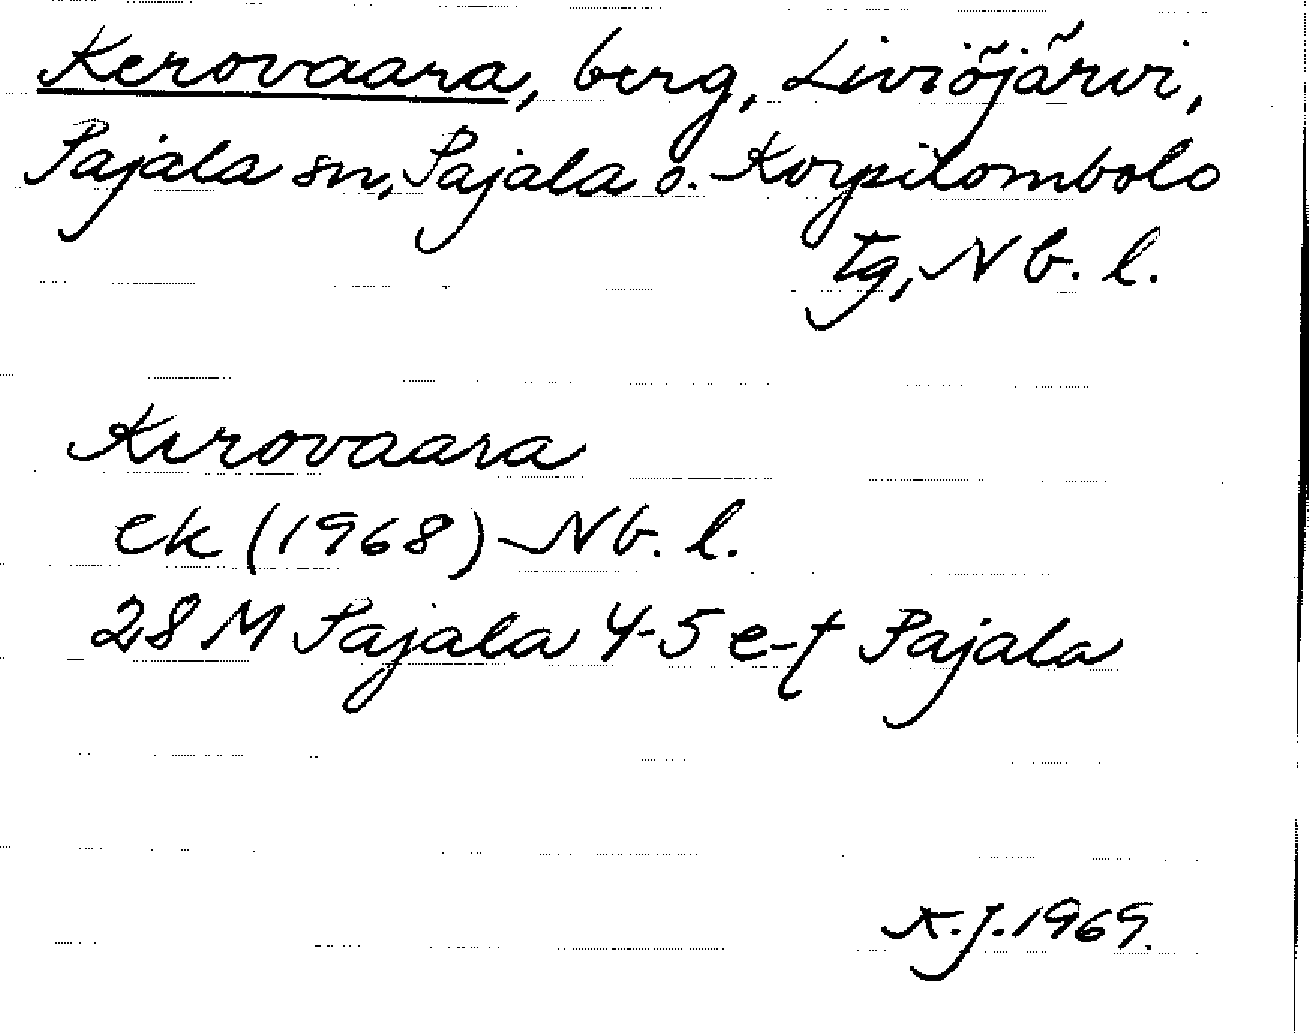 Kerovaara, berg, Liviöjärvi,
Pajala sn, Pajala o. Korpilombolo
tg, Nb. l.
Kerovaara
ek (1968) Nb. l.
28 M Pajala 4-5 e-f Pajala
K.J. 1969.